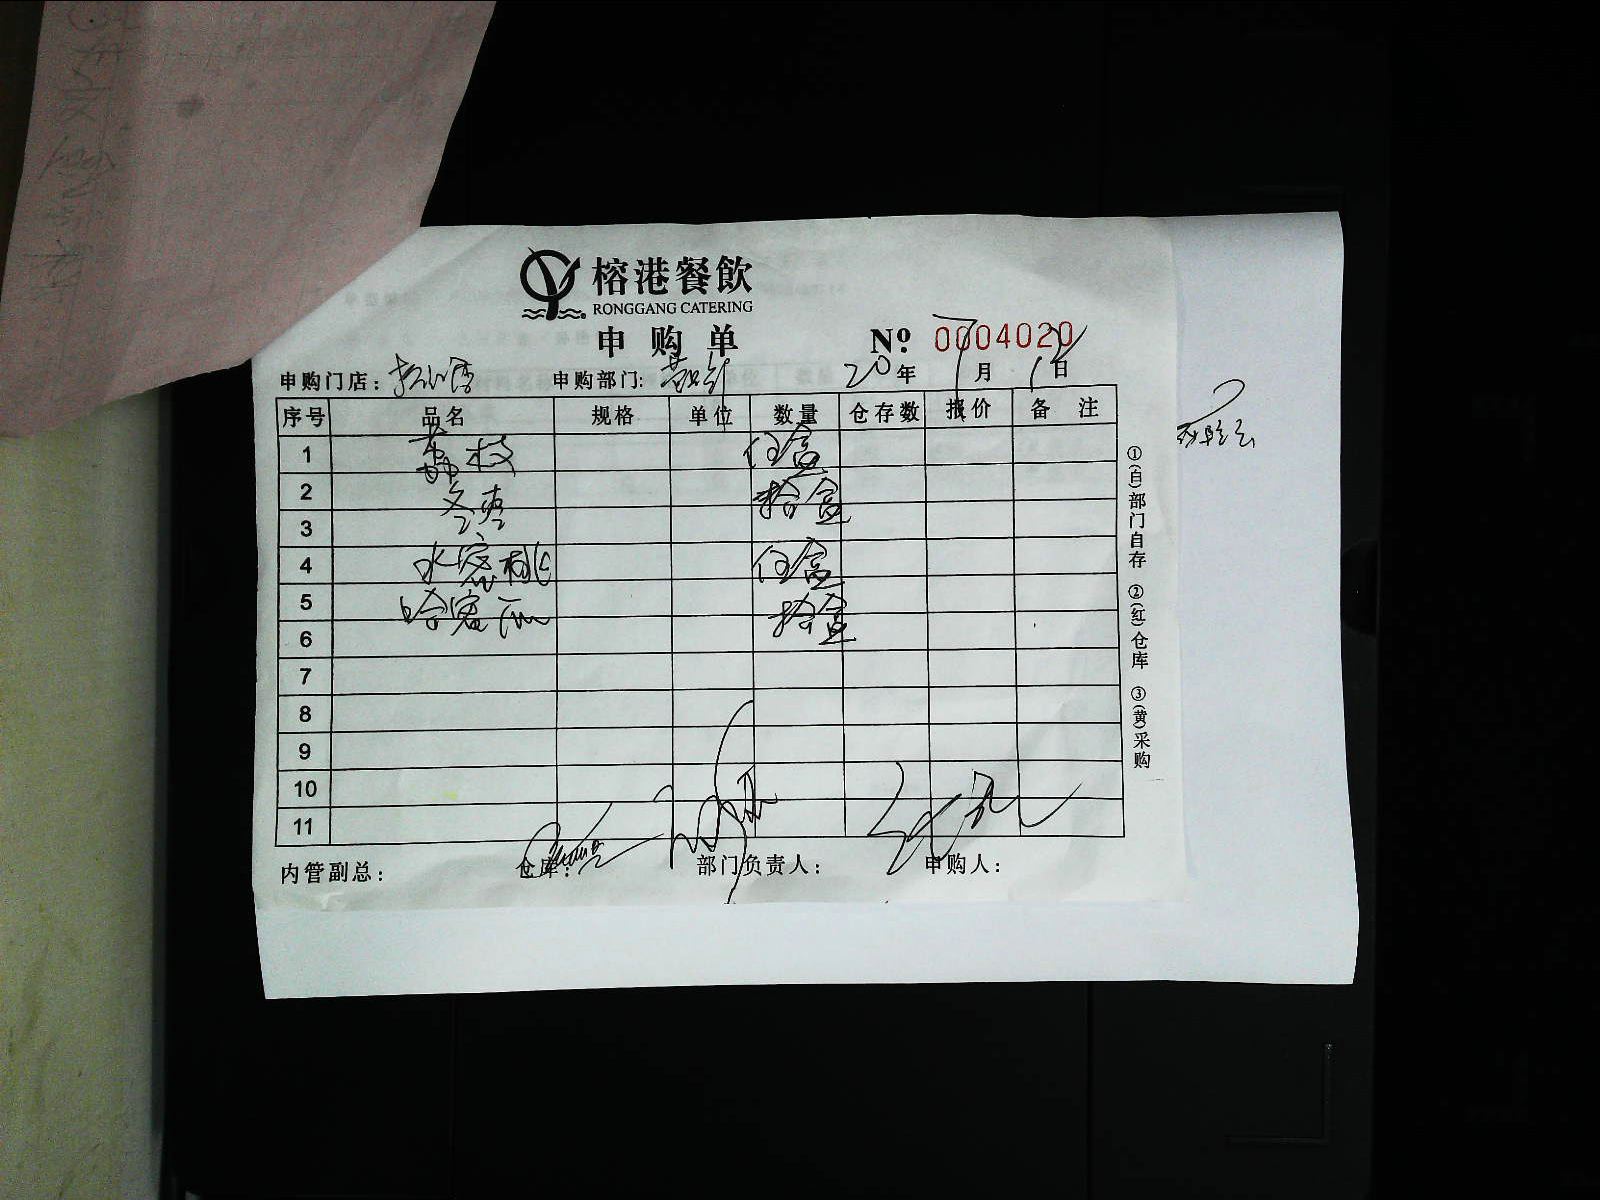 榕港餐飲
RONGGANG CATERING
申购单
№ 0004020
申购门店: 申购部门: 20年7月12日
序号 品名 规格 单位 数量 仓存数 报价 备注
1 荔枝 伍盒
2 冬枣 拾盒
3
4 水蜜桃 伍盒
5 哈密瓜 拾盒
6
7
8
9
10
11
内管副总: 仓库: 部门负责人: 申购人:
①(白)部门自存 ②(红)仓库 ③(黄)采购